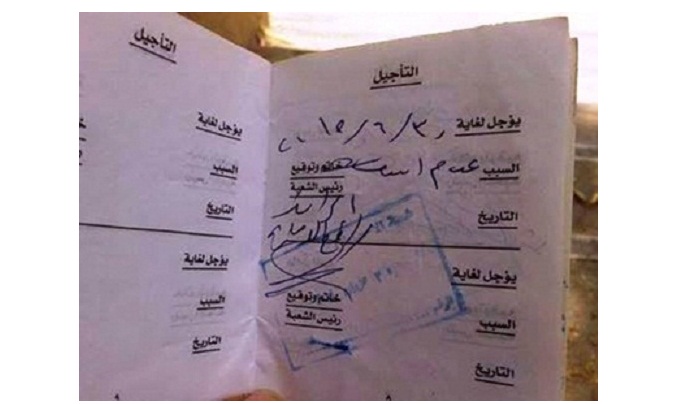 التأجيل
يؤجل لغاية ٢٠١٥/٦/٣٠
السبب عدم
خاتم وتوقيع
رئيس الشعبة
التاريخ
الرائد
يؤجل لغاية
خاتم وتوقيع
السبب
رئيس الشعبة
التاريخ
التأجيل
يؤجل لغاية
السبب
التاريخ
يؤجل لغاية
السبب
التاريخ